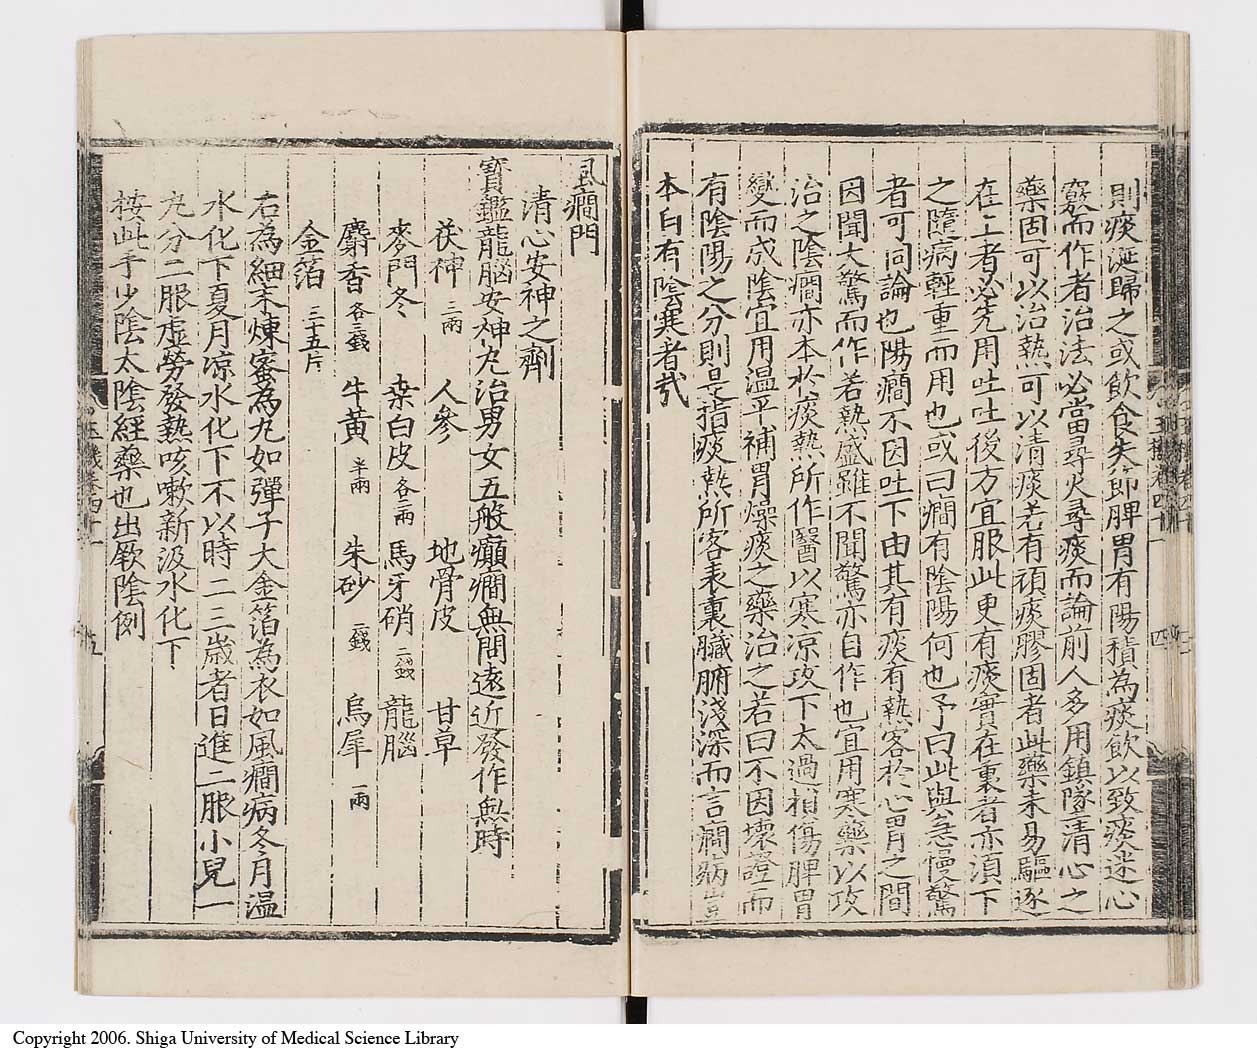 則痰涎歸之或飲食失節脾胃有陽積為痰飲以致痰迷心
竅而作者治法必當尋火尋痰而論前人多用鎮墜清心之
藥固可以治熱可以清痰若有頑痰膠固者此藥未易驅逐
在上者必先用吐吐後方宜服此更有痰實在裏者亦須下
之隨病輕重而用也或曰癇有陰陽何也予曰此與急慢驚
者可同論也陽癇不因吐下由其有痰有熱客於心胃之間
因聞大驚而作若熱盛雖不聞驚亦自作也宜用寒藥以攻
治之陰癇亦本於痰熱所作醫以寒凉攻下太過損傷脾胃
變而成陰宜用温平補胃燥痰之藥治之若曰不因壞證而
有陰陽之分則是指痰熱所客表裏臟腑淺深而言癇病豈
本自有陰寒者㦲
風癇門
清心安神之劑
寶鑑龍腦安神丸治男女五般癲癇無問遠近發作無時
茯神 三兩 人參 地骨皮 甘草
麥門冬 桒白皮 各二兩 馬牙硝 二錢 龍腦
麝香 各三錢 牛黃 半兩 朱砂 二錢 烏犀 一兩
金箔 三十五片
右為細末煉蜜為丸如彈子大金箔為衣如風癇病冬月温
水化下夏月凉水化下不以時二三歲者日進二服小兒一
丸分二服虛勞發熱咳嗽新汲水化下
按此手少陰太陰經藥也出厥陰例
玉機卷四十一
五
四
Copyright 2006. Shiga University of Medical Science Library